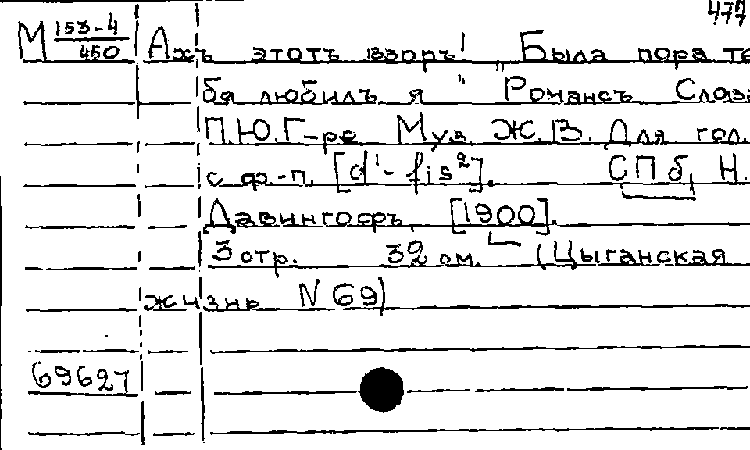 477
М 153-4/450 Ахъ этотъ взоръ! „Была пора те
бя любилъ я" Романсъ Слова
П.Ю.Г-ре Муз. Ж.В. Для гол.
с ф.-п. [d¹-fis²]. СПб, Н.
Давингофъ, [1900].
3 стр. 32 см. (Цыганская
жизнь N 69)
69627